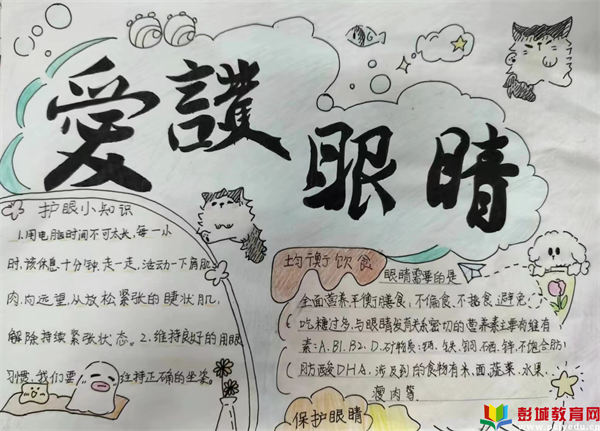 愛護眼睛
护眼小知识
1.用电脑时间不可太长,每一小
时,该休息十分钟,走一走,活动一下肩肌
肉,向远望,从放松紧张的睫状肌,
解除持续紧张状态。2.维持良好的用眼
习惯,我们要
往持正确的坐姿。
均衡饮食
眼睛需要的是
全面营养,平衡膳食,不偏食,不挑食,避免
吃糖过多,与眼睛发育关系密切的营养素主要有维有
素:A、B1、B2、D、矿物质:钙、铁、铜、硒、锌、不饱合肪
肪酸DHA,涉及到的食物有米、面、蔬菜、水果、
瘦肉等
保护眼睛
彭城教育网
www.pcjyedu.cn